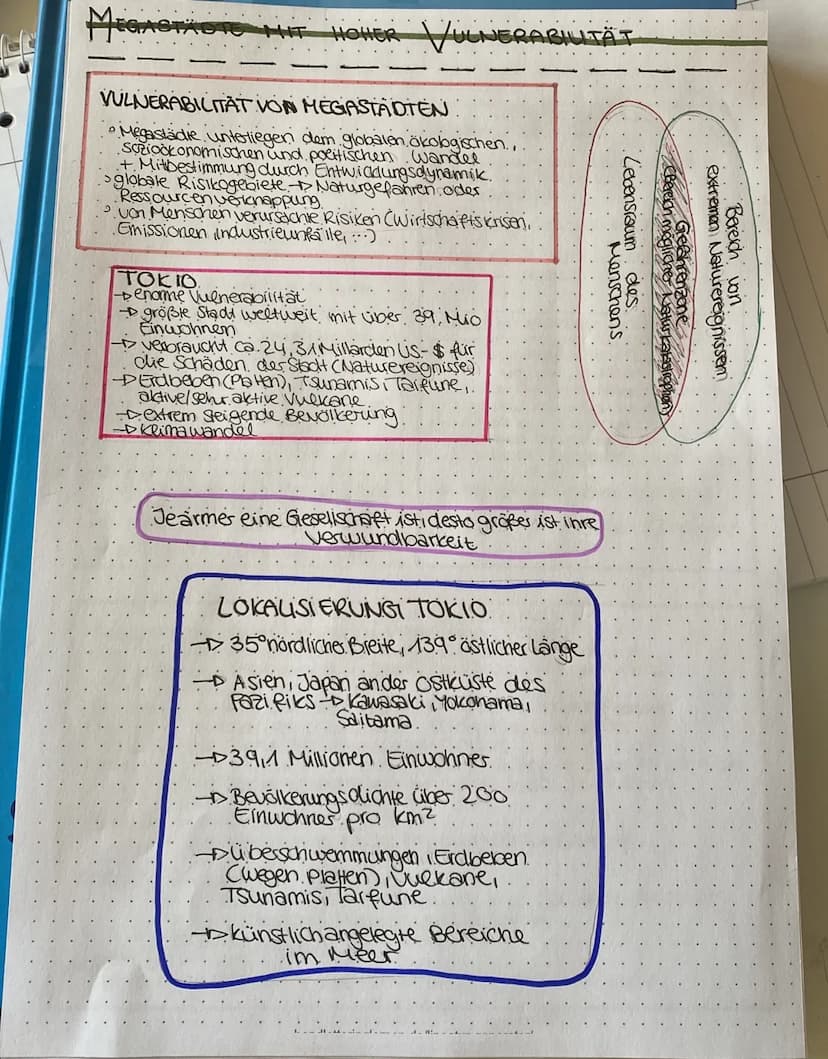 MEGASTÄDTE MIT HOHER VULNERABILITÄT
VULNERABILITÄT VON MEGASTÄDTEN
° Megastädte unterliegen dem globalen ökologischen,
sozioökonomischen und politischen Wandel
+ Mitbestimmung durch Entwicklungsdynamik
° globale Risikogebiete → Naturgefahren oder
Ressourcenverknappung
° von Menschen verursachte Risiken (Wirtschaftskrisen,
Emissionen, Industrieunfälle, ...)
Bereich von
extremen Naturereignissen
Gefahrenzone
(Bereich möglicher Naturkatastrophen)
Lebensraum des
Menschens
TOKIO
→ enorme Vulnerabilität
→ größte Stadt weltweit mit über 39 Mio
Einwohnern
→ verbraucht ca. 24,31 Milliarden US-$ für
die Schäden der Stadt (Naturereignisse)
→ Erdbeben (Platten), Tsunamis, Taifune,
aktive/sehr aktive Vulkane
→ extrem steigende Bevölkerung
→ Klimawandel
Je ärmer eine Gesellschaft ist, desto größer ist ihre
Verwundbarkeit
LOKALISIERUNG TOKIO
→ 35° nördlicher Breite, 139° östlicher Länge
→ Asien, Japan an der Ostküste des
Pazifiks → Kawasaki, Yokohama,
Saitama
→ 39,1 Millionen Einwohner
→ Bevölkerungsdichte über 200
Einwohner pro km²
→ Überschwemmungen, Erdbeben
(wegen Platten), Vulkane,
Tsunamis, Taifune
→ künstlich angelegte Bereiche
im Meer